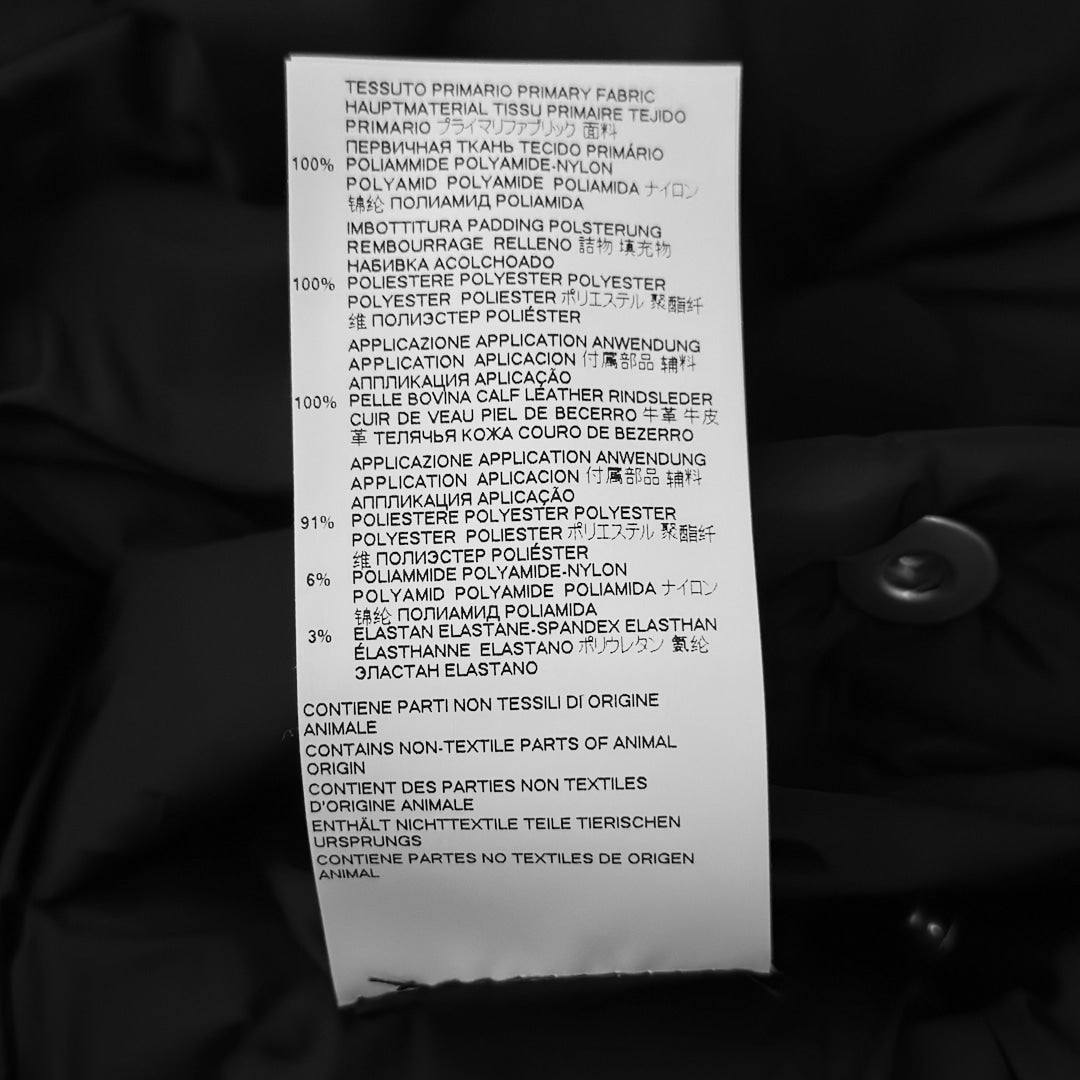 TESSUTO PRIMARIO PRIMARY FABRIC
HAUPTMATERIAL TISSU PRIMAIRE TEJIDO
PRIMARIO プライマリファブリック 面料
ПЕРВИЧНАЯ ТКАНЬ TECIDO PRIMÁRIO
100% POLIAMMIDE POLYAMIDE-NYLON
POLYAMID POLYAMIDE POLIAMIDA ナイロン
锦纶 ПОЛИАМИД POLIAMIDA
IMBOTTITURA PADDING POLSTERUNG
REMBOURRAGE RELLENO 詰物 填充物
НАБИВКА ACOLCHOADO
100% POLIESTERE POLYESTER POLYESTER
POLYESTER POLIESTER ポリエステル 聚酯纤
维 ПОЛИЭСТЕР POLIÉSTER
APPLICAZIONE APPLICATION ANWENDUNG
APPLICATION APLICACION 付属部品 辅料
АППЛИКАЦИЯ APLICAÇÃO
100% PELLE BOVINA CALF LEATHER RINDSLEDER
CUIR DE VEAU PIEL DE BECERRO 牛革 牛皮
革 ТЕЛЯЧЬЯ КОЖА COURO DE BEZERRO
APPLICAZIONE APPLICATION ANWENDUNG
APPLICATION APLICACION 付属部品 辅料
АППЛИКАЦИЯ APLICAÇÃO
91% POLIESTERE POLYESTER POLYESTER
POLYESTER POLIESTER ポリエステル 聚酯纤
维 ПОЛИЭСТЕР POLIÉSTER
6% POLIAMMIDE POLYAMIDE-NYLON
POLYAMID POLYAMIDE POLIAMIDA ナイロン
锦纶 ПОЛИАМИД POLIAMIDA
3% ELASTAN ELASTANE-SPANDEX ELASTHAN
ÉLASTHANNE ELASTANO ポリウレタン 氨纶
ЭЛАСТАН ELASTANO
CONTIENE PARTI NON TESSILI DI ORIGINE
ANIMALE
CONTAINS NON-TEXTILE PARTS OF ANIMAL
ORIGIN
CONTIENT DES PARTIES NON TEXTILES
D'ORIGINE ANIMALE
ENTHÄLT NICHTTEXTILE TEILE TIERISCHEN
URSPRUNGS
CONTIENE PARTES NO TEXTILES DE ORIGEN
ANIMAL